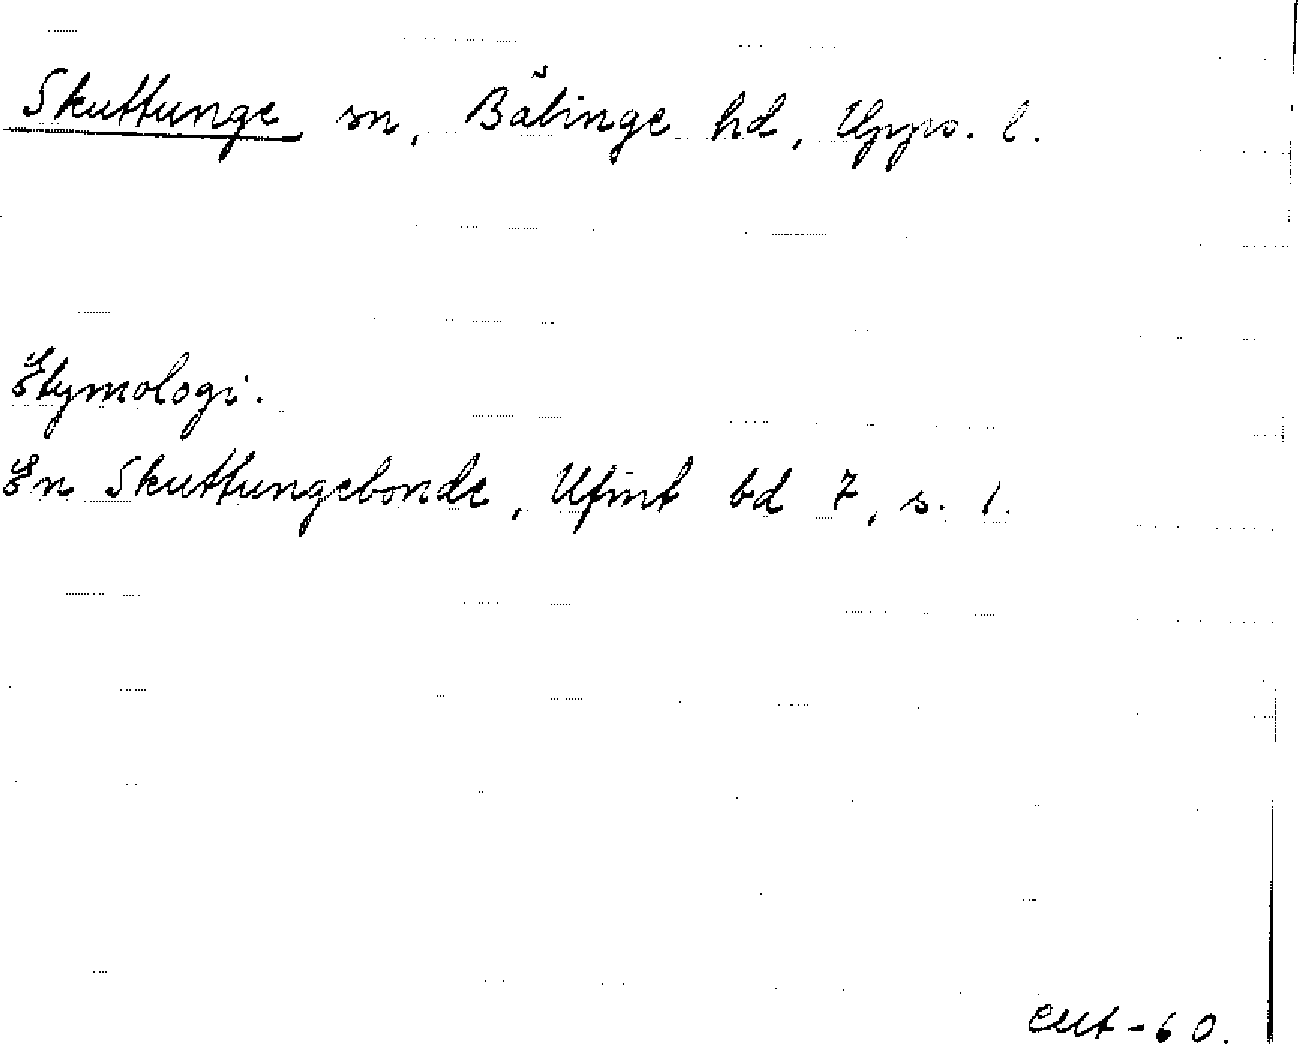 Skuttunge sn, Bälinge hd, Upps. l.
Etymologi.
En Skuttungebonde, Ufmt bd 7, s. 1.
EMt-60.